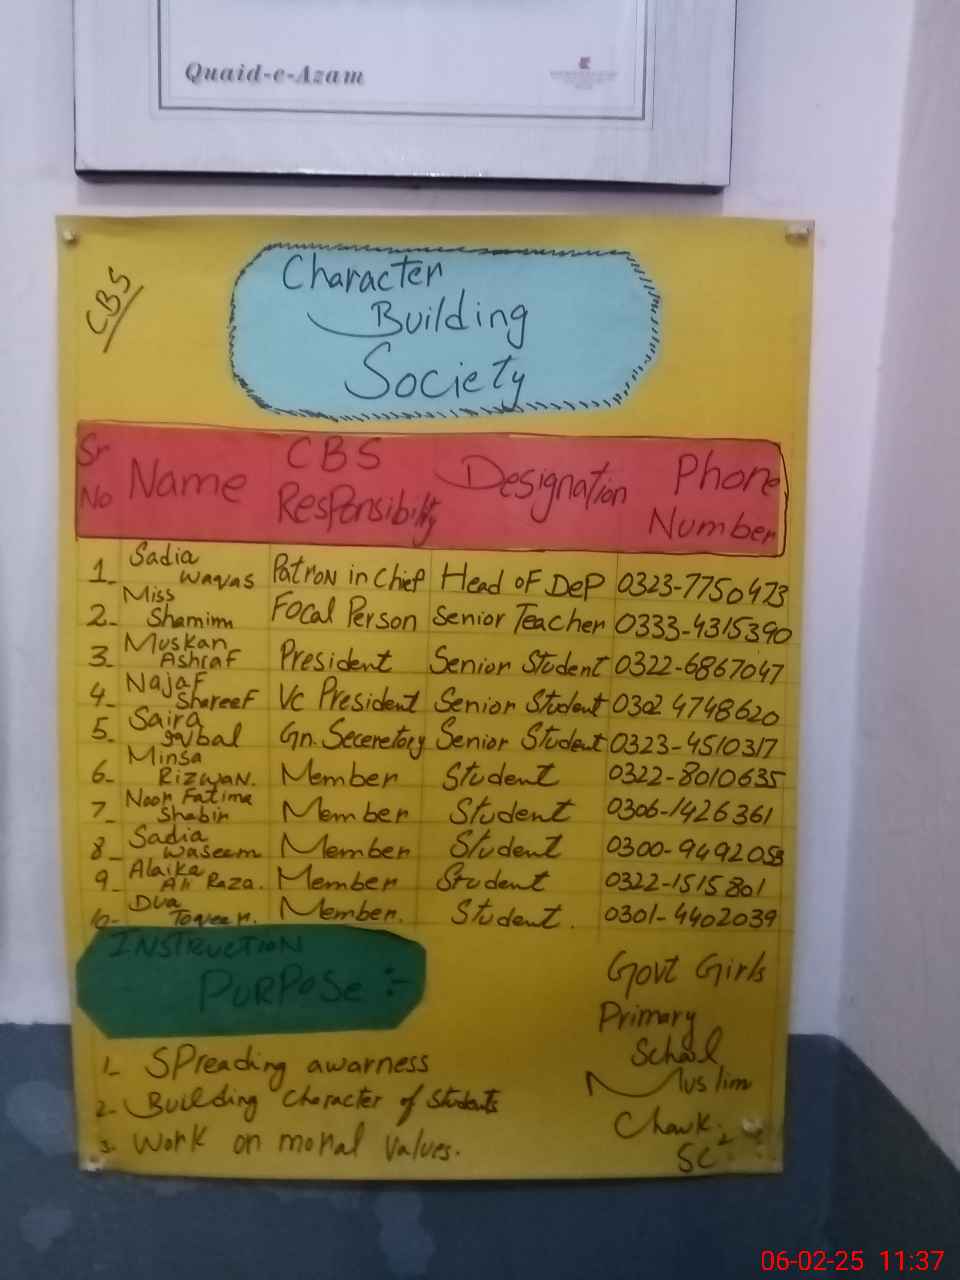 Quaid-e-Azam
CBS
Character
Building
Society
Sr No Name CBS Responsibility Designation Phone Number
1- Sadia Waqas Patron in Chief Head of Dep 0323-7750473
2- Miss Shamim Focal Person Senior Teacher 0333-4315390
3- Muskan Ashraf President Senior Student 0322-6867047
4- Najaf Shareef Vc President Senior Student 0302 4748620
5- Saira Iqbal Gn. Seceretory Senior Student 0323-4510317
6- Minsa Rizwan. Member Student 0322-8010635
7- Noor Fatima Shabir Member Student 0306-1426361
8- Sadia Waseem Member Student 0300-9492053
9- Alaika Ali Raza. Member Student 0322-1515801
10- Dua Member. Student. 0301-4402039
Instruction
Purpose :-
1- Spreading awarness
2- Building Character of Students
3- Work on moral Values.
Govt Girls
Primary
School
Muslim
Chawk.
06-02-25 11:37